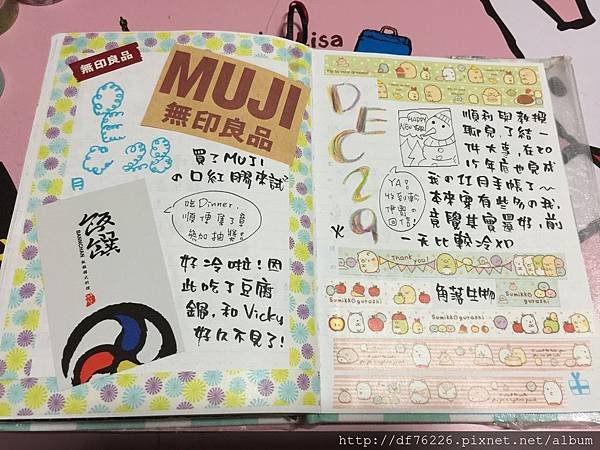 無印良品
MUJI
無印良品
買了MUJI
の口紅膠來試
吃Dinner,
順便填了意
參加抽獎。
飯饌
BANCHAN
好冷啦!因
此吃了豆腐
鍋,和Vicky
好久不見了!
DEC
29
火
HAPPY
NEW YEAR!
YA!
收到軟
便賣の
回信!
順利與教授
聊完,了結一
件大事,在20
15年底也完成
我の11月手帳了~
本來要有些多の我,
竟覺其實還好,前
一天比較冷XD
Thank you!
Sumikkogurashi
角落生物
Sumikkogurashi
Sumikkogurashi
http://df76226.pixnet.net/album